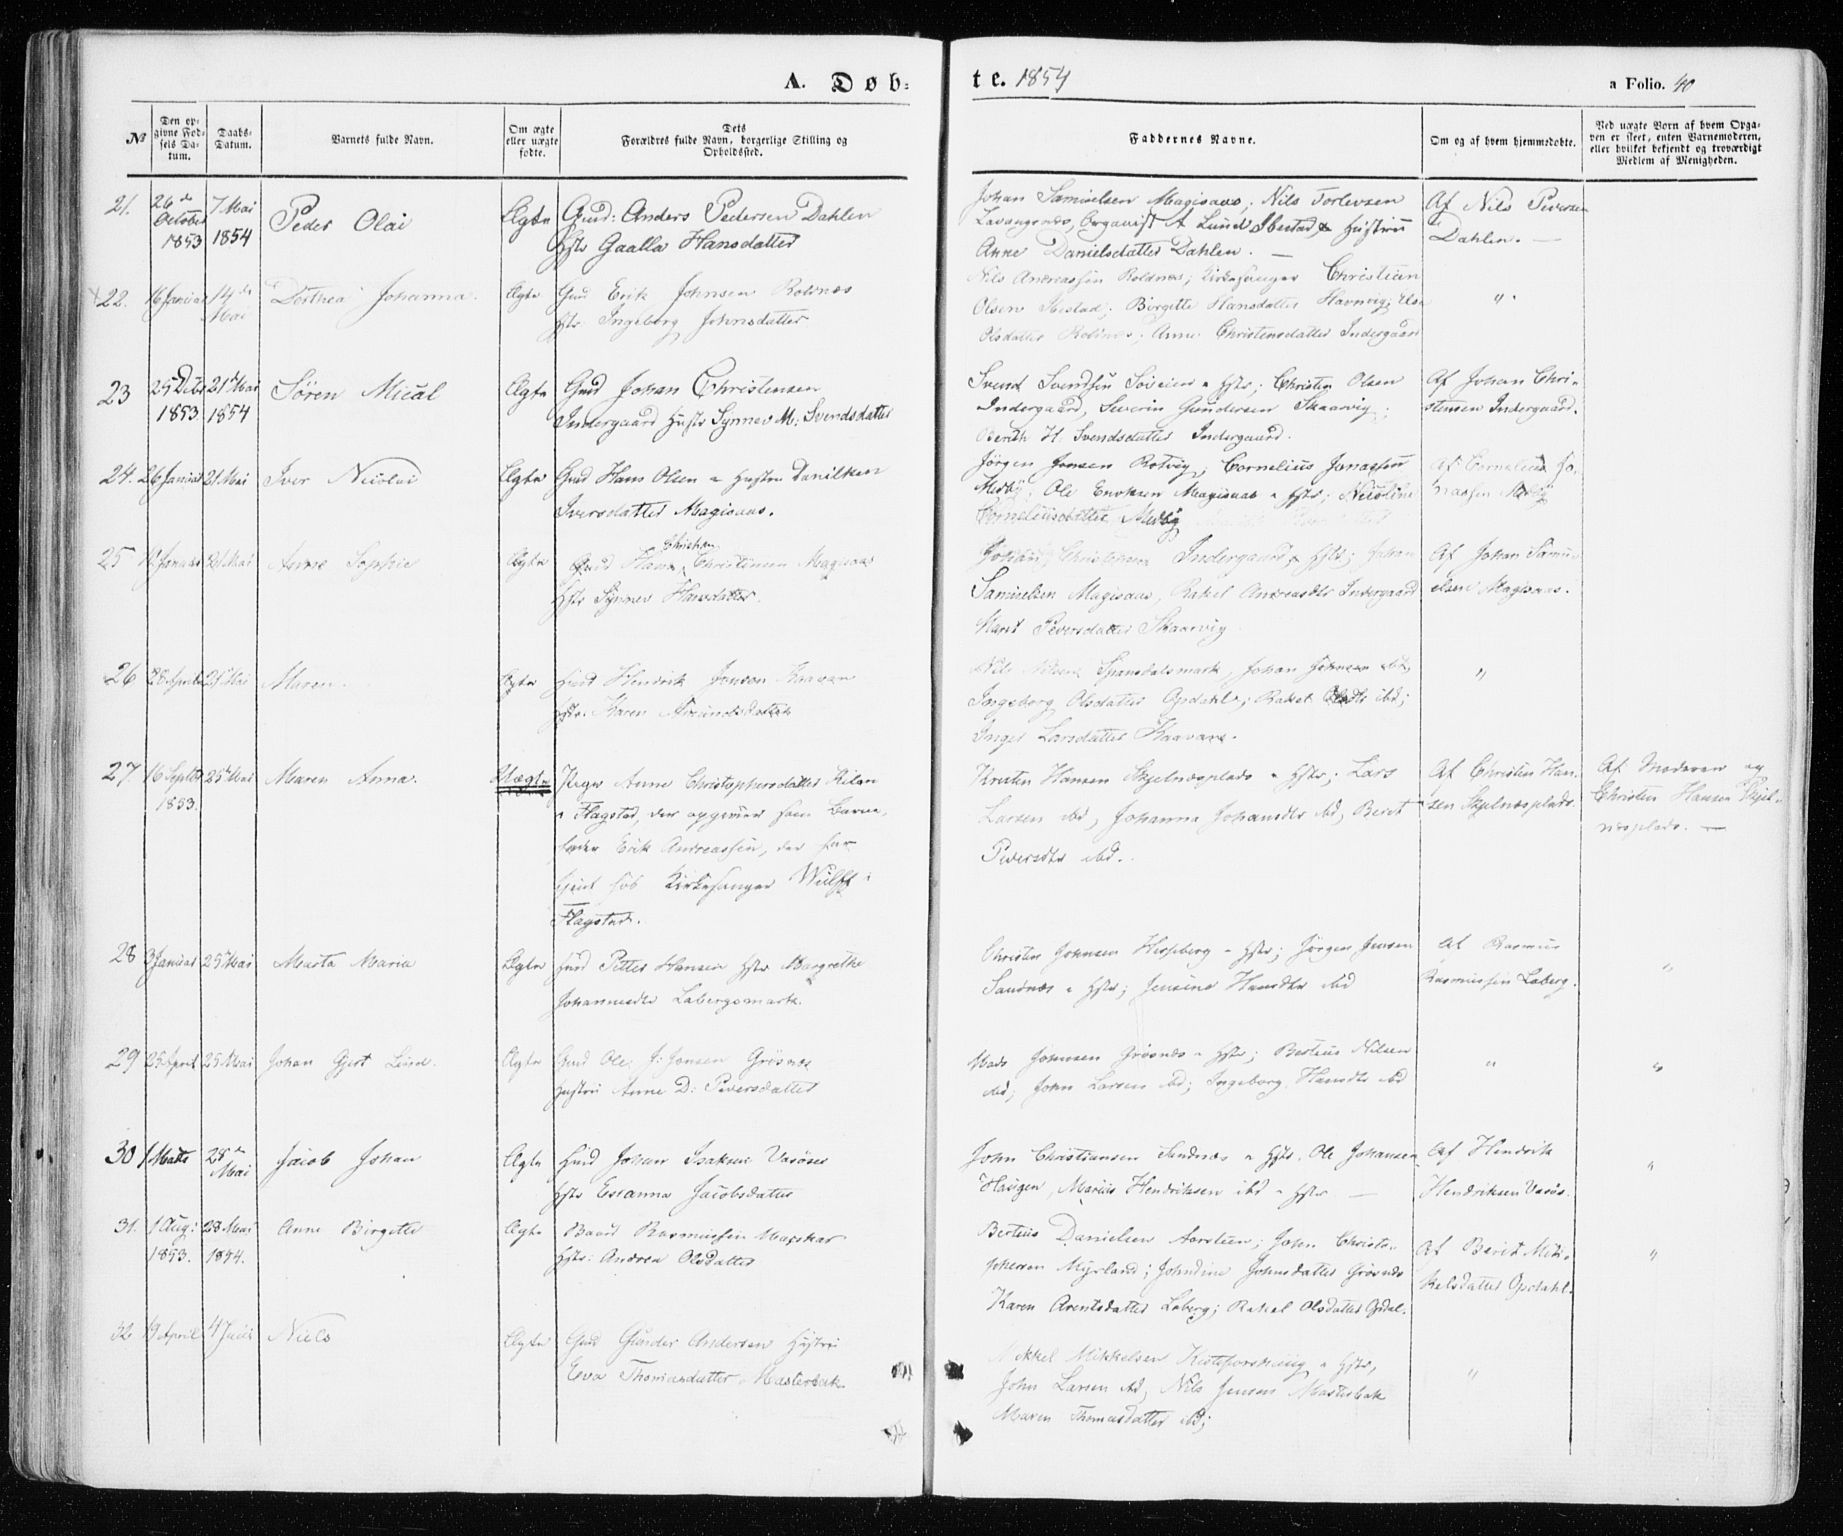 A. Døb:
te. 1854
a Folio. 40
№
Den op-
givne Fød-
sels Da-
tum.
Daabs-
Datum.
Barnets fulde Navn.
Om ægte
eller uægte
fødte.
Dets
Forældres fulde Navn, borgerlige Stilling og
Opholdssted.
Faddernes Navne.
Om og af hvem hjemmedøbte.
Ved uægte Børn af hvem Opga-
ven er skeet, enten Barnemoderen,
eller hvilket bekjendt og troværdigt
Medlem af Menigheden.
21. 26de October 1853 7 Mai 1854 Peder Olai Ægte
Gmd: Anders Pedersen Dahlen
Hstr Gaalla Hansdatter
Johan Samuelsen Magisaas; Nils Torlevsen
Lavangsnæs, Organist A Lund Ibestad & Hustrue
Anne Danielsdatter Dahlen. —
Af Nils Peversen
Dahlen. —
22. 16 Januar 14de Mai Dorthea Johanna. Ægte
Gmd Erik Johnsen Rolnæs
Hstr: Ingeborg Johnsdatter
Nils Andreassen Roldnæs; Kirkesanger Christian
Olsen Ibestad; Birgitte Hansdatter Havnvig; Else
Olsdatter Rolnæs; Anne Christensdatter Indergaard
"
23 25 Dcbr 1853 21 Mai 1854 Søren Mical Ægte
Gmd Johan Christensen
Indergaard Hustr Synnev M: Svendsdatter
Svend Svendsen Søveien & Hstr; Christen Olsen
Indergaard, Severin Gundersen Skaarvig;
Berith H. Svendsdatter Indergaard.
Af Johan Chri-
stensen Indergaard.
24. 26 Januar 21 Mai Iver Nicolai Ægte
Gmd Hans Olsen & Hustru Danilken
Iversdatter Magisaas.
Jørgen Jensen Rotvig; Cornelius Jonassen
Medby; Ole Enoksen Magisaas & Hstr; Nicoline
Corneliusdatter Medby
Af Cornelius Jo-
nassen Medby
25 Januar 21 Mai Anne Sophie Ægte
Christian
Gmd Hans Christensen Magisaas
Hstr Synnev Hansdatter.
Johan Christensen Indergaard & Hstr; Johan
Samuelsen Magisaas, Rakel Andreasdtr Indergaard
Maret Peversdatter Skaarvig.
Af Johan Samu-
elsen Magisaas.
26 28 April 25 Mai Maren. Ægte
Hmd Hendrik Jonson Kaavan
Hstr: Karen Amundsdatter
Nils Nilsen Spansdalsmark, Johan Johnsen ibd,
Ingeborg Olsdatter Opdahl; Rakel Olsdtr ibd;
Inger Larsdatter Kaavare.
"
27 16 Septbr 1853. 25 Mai Maren Anna. Uægte
Pige Anne Christophersdatter Kilan
i Flagstad, der opgiver som Barne-
fader Erik Andreassen, der har
tjent hos Kirkesanger Wulff i
Flagstad.
Kristen Hansen Skjelnæsplads & Hstr; Lars
Larsen ibd, Johanna Johansdtr ibd, Beret
Peversdtr ibd.
Af Christen Han-
sen Skjelnæsplads.
Af Moderen og
Christen Hansen Skjel-
næsplads. —
28 3 Januar 25 Mai Marta Maria Ægte
Hmd Petter Hansen Hstr Margrethe
Johannesdtr Labergsmark.
Christen Johnsen Hesseberg & Hstr; Jørgen Jensen
Sandnæs & Hstr; Jensine Hansdtr ibd
Af Rasmus
Rasmussen Laberg.
"
29 25 April 25 Mai Johan Gjert Lund. Ægte
Gmd Ole J: Jensen Grøsnæs
Hustru Anne D: Peversdatter
Mads Johnsen Grøsnæs & Hstr; Berteus Nilsen
ibd; John Larsen ibd; Ingeborg Hansdtr ibd
" "
30 1 Marts 28de Mai Jacob Johan Ægte
Hmd Johan Isaksen Vasøser
Hstr Esianna Jacobsdatter
John Christiansen Sandnæs & Hstr. Ole Johansen
Haugen, Marius Hendriksen ibd & Hstr —
Af Hendrik
Hendriksen Vasøs.
"
31. 1 Aug: 1853. 28 Mai 1854. Anne Birgitte Ægte
Baard Rasmussen Maxskar
Hstr: Andrea Olsdatter
Berteus Danielsen Aarsteen; John Christo-
phersen Myrland; Johndine Johnsdatter Grøsnæs
Karen Arentsdatter Laberg; Rakel Olsdatter Opdal.
Af Berit Mik-
kelsdatter Opdahl.
"
32 9 April 4 Juni Niels Ægte
Gmd Gunder Andersen Hustru
Eva Thomasdatter Masterbak
Mikkel Mikkelsen & Hstr,
John Larsen ibd, Nils Jensen Masterbak
Maren Thomasdatter ibd;
"